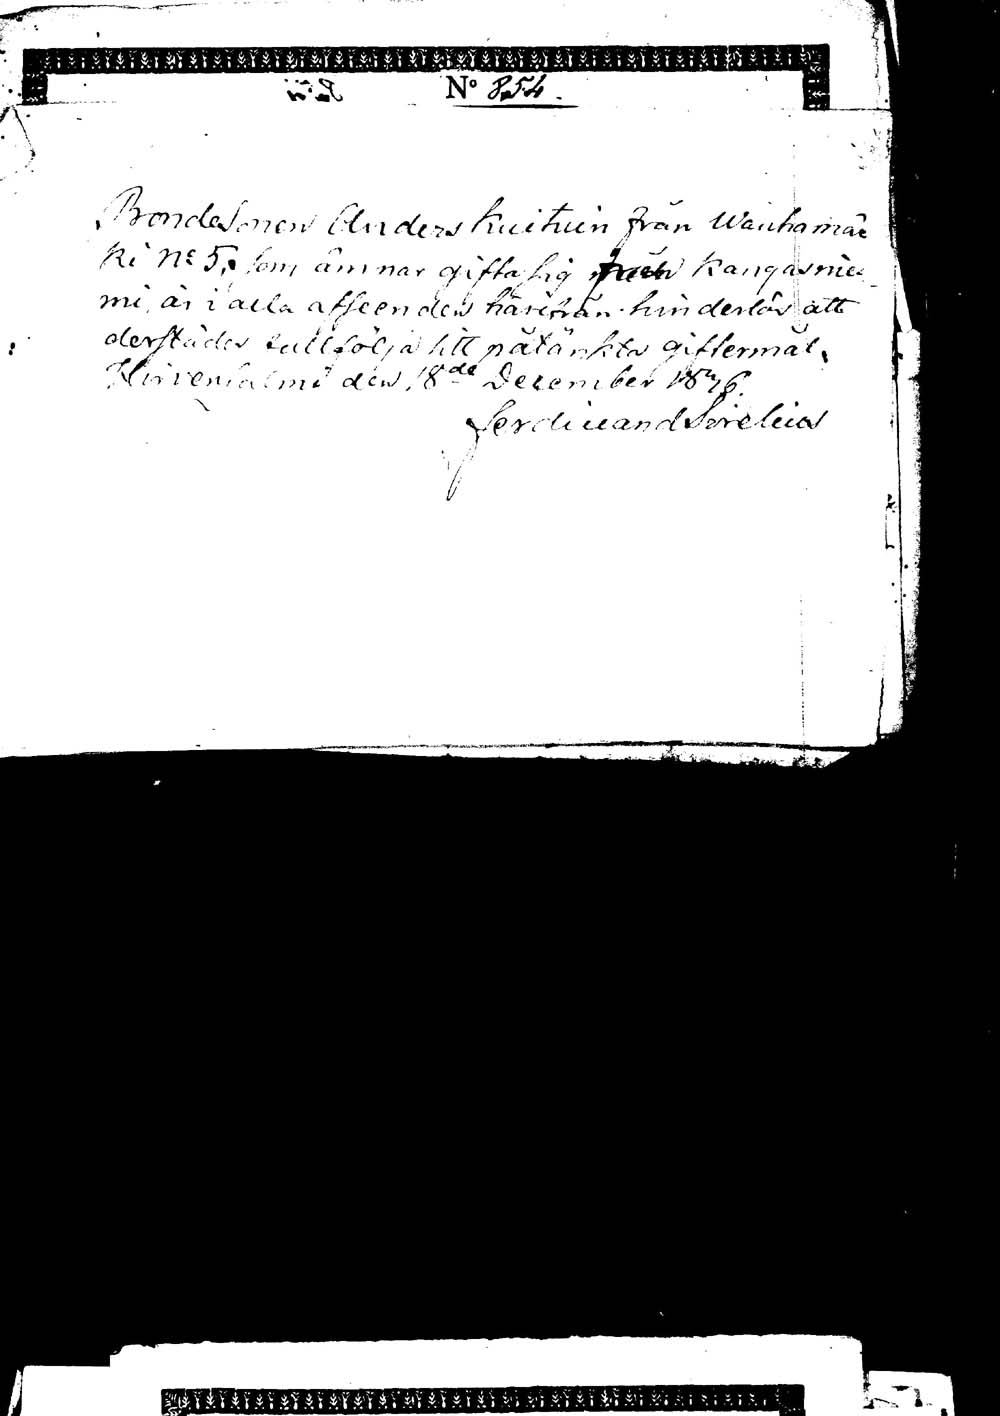 No 854.
Bondesonen Anders Kuituin från Wanhamäe
ki No 5, som ämnar gifta sig Kangasnie-
mi, är i alla afseenden härifrån hinderlös att
derstädes fullfölja sitt påtänkta giftermål.
Hirvensalmi den 18de December 1876.
Ferdinand Sirelius